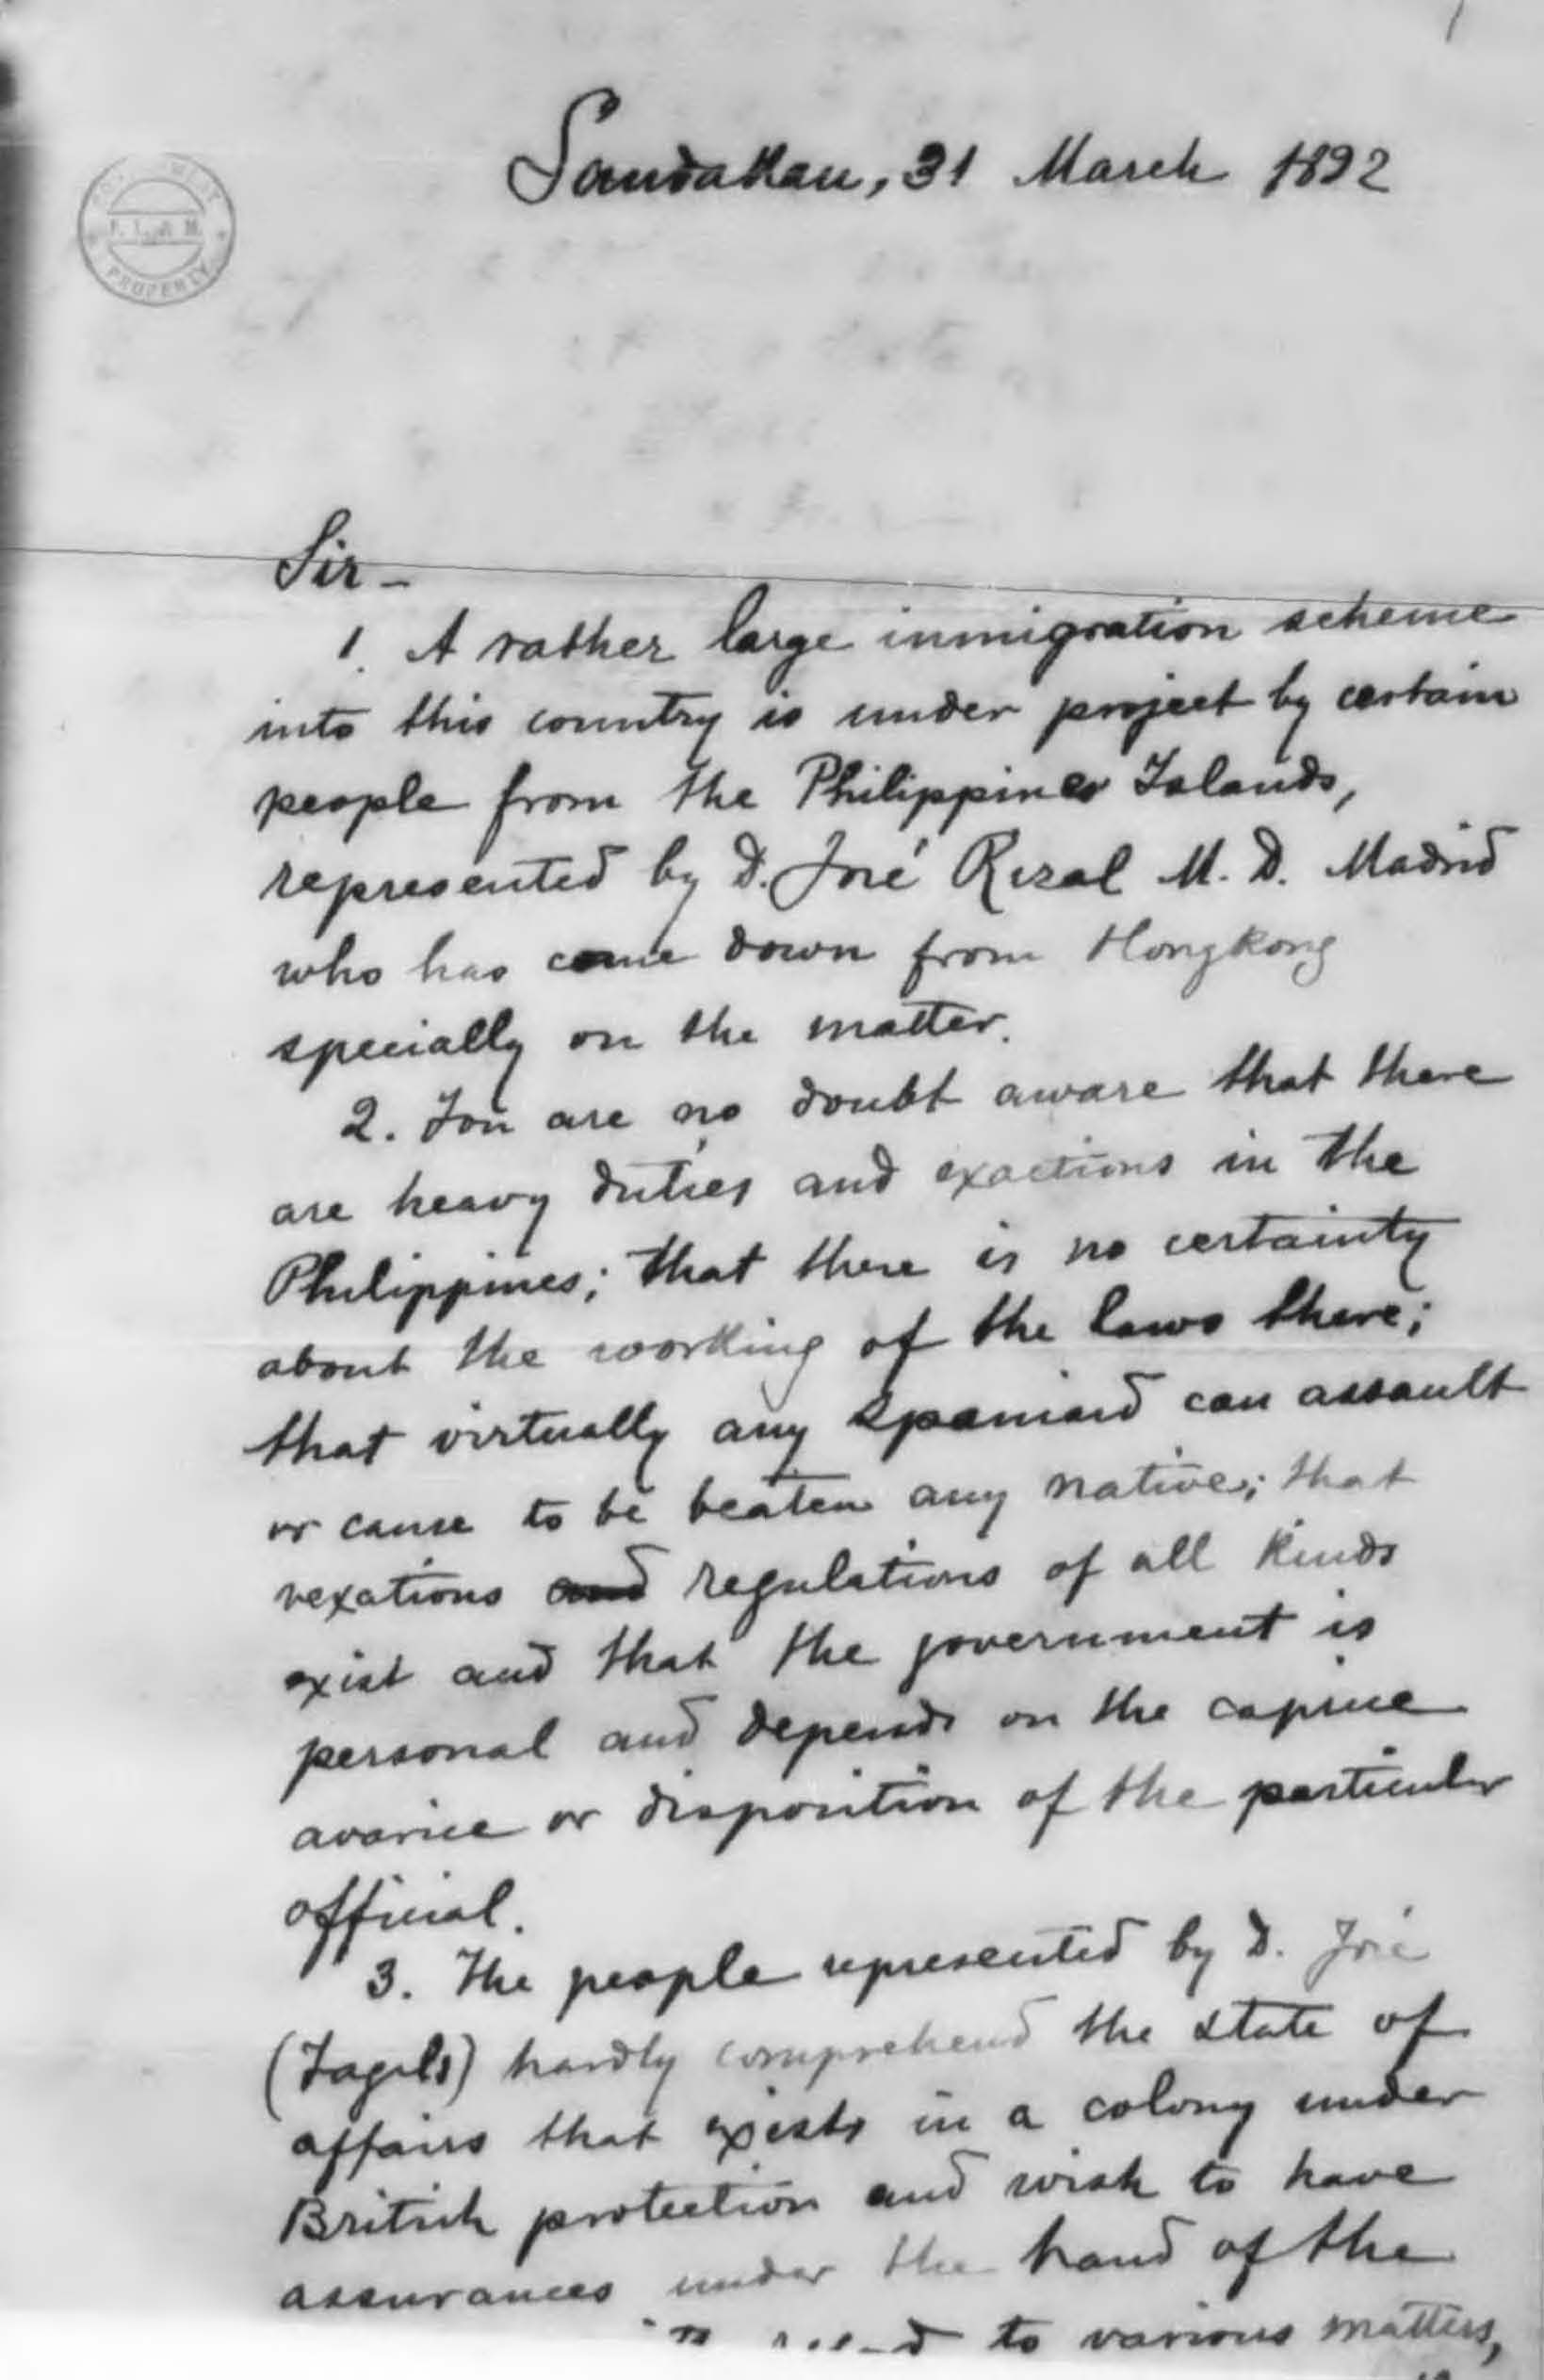 Sandakan, 31 March 1892
PROPERTY
Sir -
1. A rather large inmigration scheme
into this country is under project by certain
people from the Philippines Islands,
represented by D. José Rizal M. D. Madrid
who has come down from Hongkong
specially on the matter.
2. You are no doubt aware that there
are heavy duties and exactions in the
Philippines; that there is no certainty
about the working of the laws there;
that virtually any Spaniard can assault
or cause to be beaten any native; that
vexations and regulations of all kinds
exist and that the government is
personal and depends on the caprice
avarice or disposition of the particular
official.
3. The people represented by D. José
(Tagals) hardly comprehend the state of
affairs that exists in a colony under
British protection and wish to have
assurances under the hand of the
to various matters,